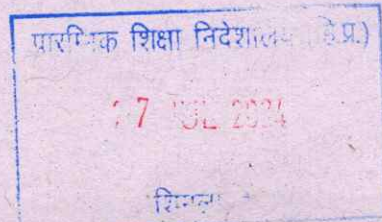 प्रारम्भिक शिक्षा निदेशालय (हि.प्र.)
JUL 2024
शिमला